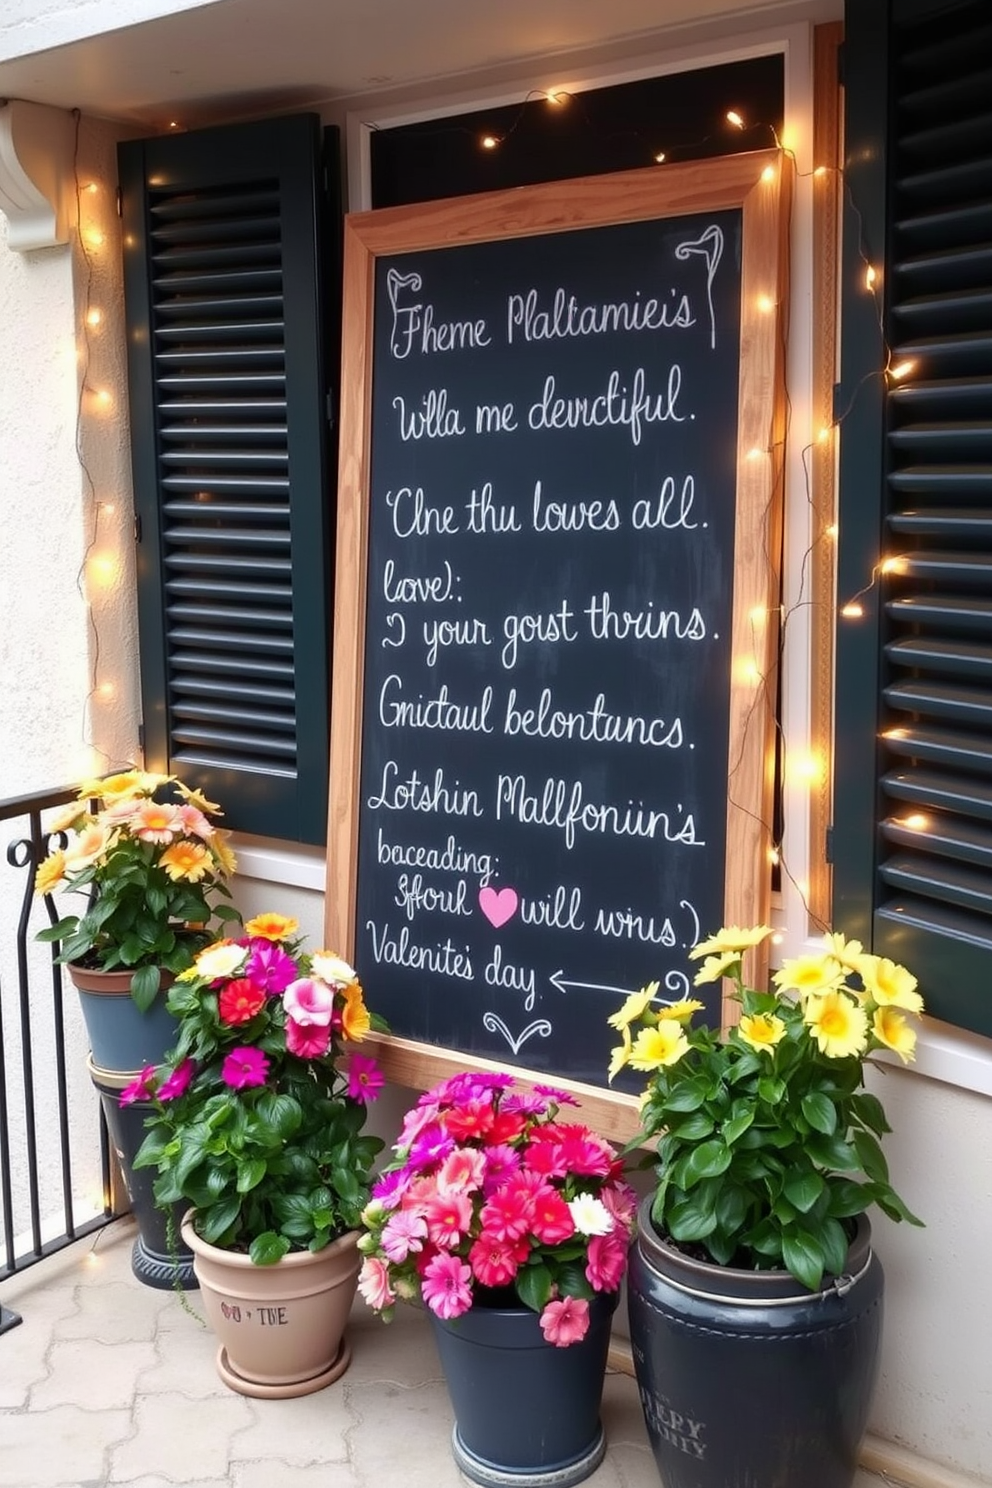 Fheme Plaltamiei's
Wlla me devictiful.
'Clne thu lowes all.
love):
I your goist thrins.
Gnictaul belontuncs.
Lotshin Mallfoniin's
baceading:
will wius.)
Valenite's day